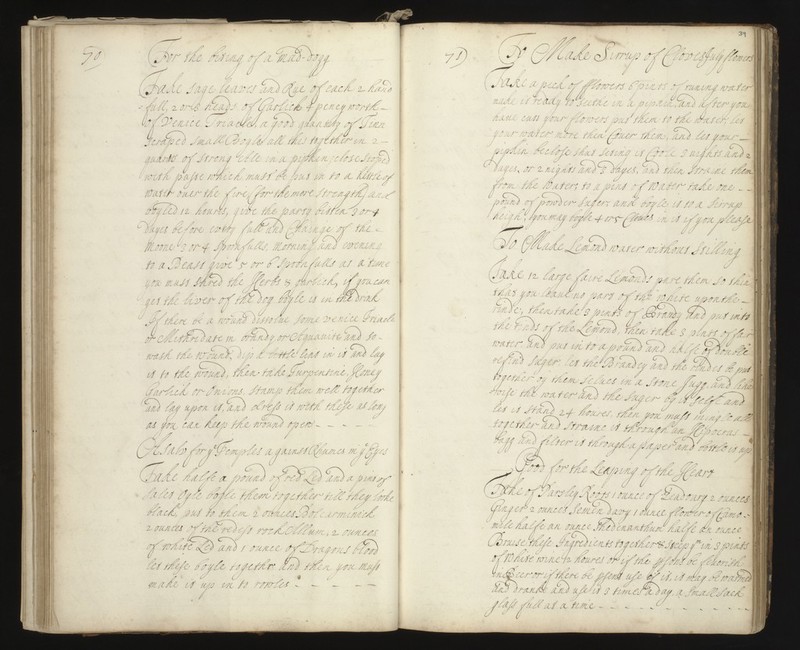 70
For the biting of a mad dogg
Take sage leaves and Rue of each 2 hand
full, 2 or 3 heads of Garlick 4 peney worth
of Venice Triacle, a good quantity of Tinn
scraped small Boyle all this together in 2
quarts of strong Ale in a pipkin close stoped
with paste which must be put in to a kettle of
water over the fire (for the more strength) and
boyled 12 houres, give the party bitten 3 or 4
dayes before every full and Chainge of the
Moone 3 or 4 spoonfulls morning and evening
to a Beast give 5 or 6 spoonfulls at a time
you must shred the Herbs & Garlick, if you can
get the liver of the dog boyle it in the drink
If there be a wound disolve some Venice Triacle
or Mithridate in brandy or Aquavite and so
wash the wound, dip a little lint in it and lay
it to the wound, then take Turpentine, Honey
Garlick or Onions, stamp them well together
and lay upon it, and dress it with these as long
as you can keep the wound open
A salve for ye Temples against Rhumes in ye Eyes
Take halfe a pound of red Led and a pint of
Sallet Oyle boyle them together till they looke
black put to them 8 ounces Bolearmineck
2 ounces of the redest rock Allum, 2 ounces
of white Led and 1 ounce of Dragons blood
let these boyle together and then you must
make it up in to rowles
71
39
To Make Sirrup of Clove July flowers
Take a peck of flowers 6 pints of runing water
make it ready to seethe in a pipkin, and after you
have cutt your flowers put them to the water, let
your water more then cover them, and let your
pipkin be close shut, seting it Coole 3 nights and 2
dayes, or 2 nights and 3 dayes, and then straine them
from the Water, to a pint of Water take one
pound of powder suger, and boyle it to a Sirrap
heigh, you may boyle 4 or 5 Cloves in it if you please
To Make Lemond water without Stilling
Take 12 large faire Lemonds pare them so thin
that you leave no part of the white upon the
rinde, then take 3 pints of Brandy and put into
the rinds of the Lemond, then take 3 pints of fair
water and put in to a pound and halfe of double
refind Suger, let the Brandey and the rindes be put
together by them selves in a Stone Jugg and likewise
the water and the Suger by it selfe and
let it stand 24 houres, then you must mingle all
together and straine it through an Hipocras
bagg and filter it through a paper and bottle it up
Good for the Leaping of the Heart
Take of Parsley Roots 1 ounce of
Ginger 2 ounces 1 ounce flowers of Camo
mile halfe an ounce halfe an ounce
Bruise these Ingredients together & steep ym in 3 pints
of White wine 12 houres or if the pson be
use of it, it may be warmed
and dranke and use it 3 times a day, a small sack
glass full at a time